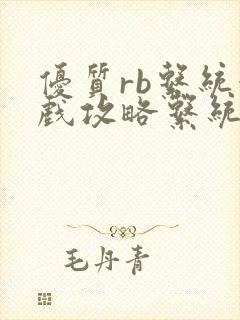 優質rb繫統
戲攻略繫統
毛丹青